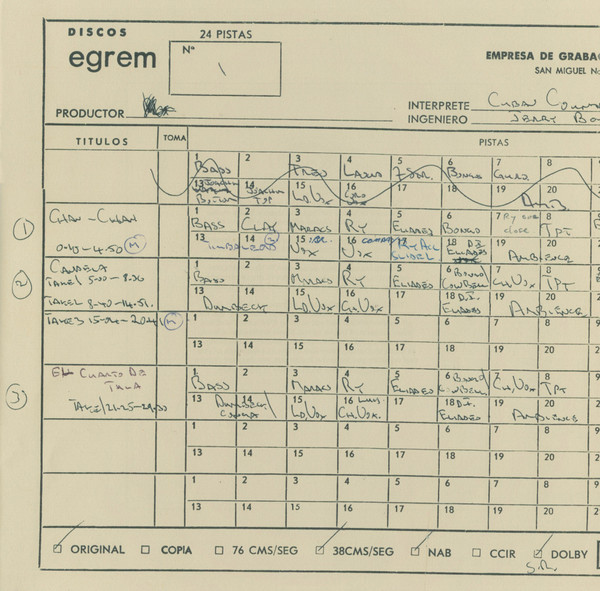 DISCOS
egrem
24 PISTAS
Nº
\
EMPRESA DE GRABAC
SAN MIGUEL No
PRODUCTOR
INTERPRETE CUBAN
INGENIERO JERRY BO
TITULOS TOMA PISTAS
1 2 3 4 5 6 7 8
BASS TRES LAUD BONGO
13 14 15 16 17 18 19 20
JOACHIM LD. VOX
BOTTOM TOP
① CHAN-CHAN
1 2 3 4 5 6 7 8
BASS CLAY MARACS RY ELIADES BONGO Ry close TPT
0-40-4.50 M
13 14 15 16 17 18 D.I. 19 20
VOX VOX RY ACC ELIADES AMBIENCE
② CANDELA
TAKE1 5-00-8.30
1 2 3 4 5 6 7 8
BASS MARACS RY ELIADES BONGO COWBELL CH, VOX TPT
TAKE2 8-40-14.51.
13 14 15 16 17 18 D.I. 19 20
DUMBECK LD, VOX CH. VOX ELIADES AMBIENCE
TAKE3 15-00-20.24 M
1 2 3 4 5 6 7 8
13 14 15 16 17 18 19 20
③ EL CUARTO DE
TULA
1 2 3 4 5 6 7 8
BASS MARACS RY ELIADES BONGO COWBELL CH, VOX TPT
TAKE1 21-25-29.00
13 14 15 16 17 18 D.I. 19 20
DUMBECK/ CONGA LD. VOX LUIS CH. VOX. ELIADES AMBIENCE
1 2 3 4 5 6 7 8
13 14 15 16 17 18 19 20
1 2 3 4 5 6 7 8
13 14 15 16 17 18 19 20
ORIGINAL COPIA 76 CMS/SEG 38CMS/SEG NAB CCIR DOLBY
S.R.